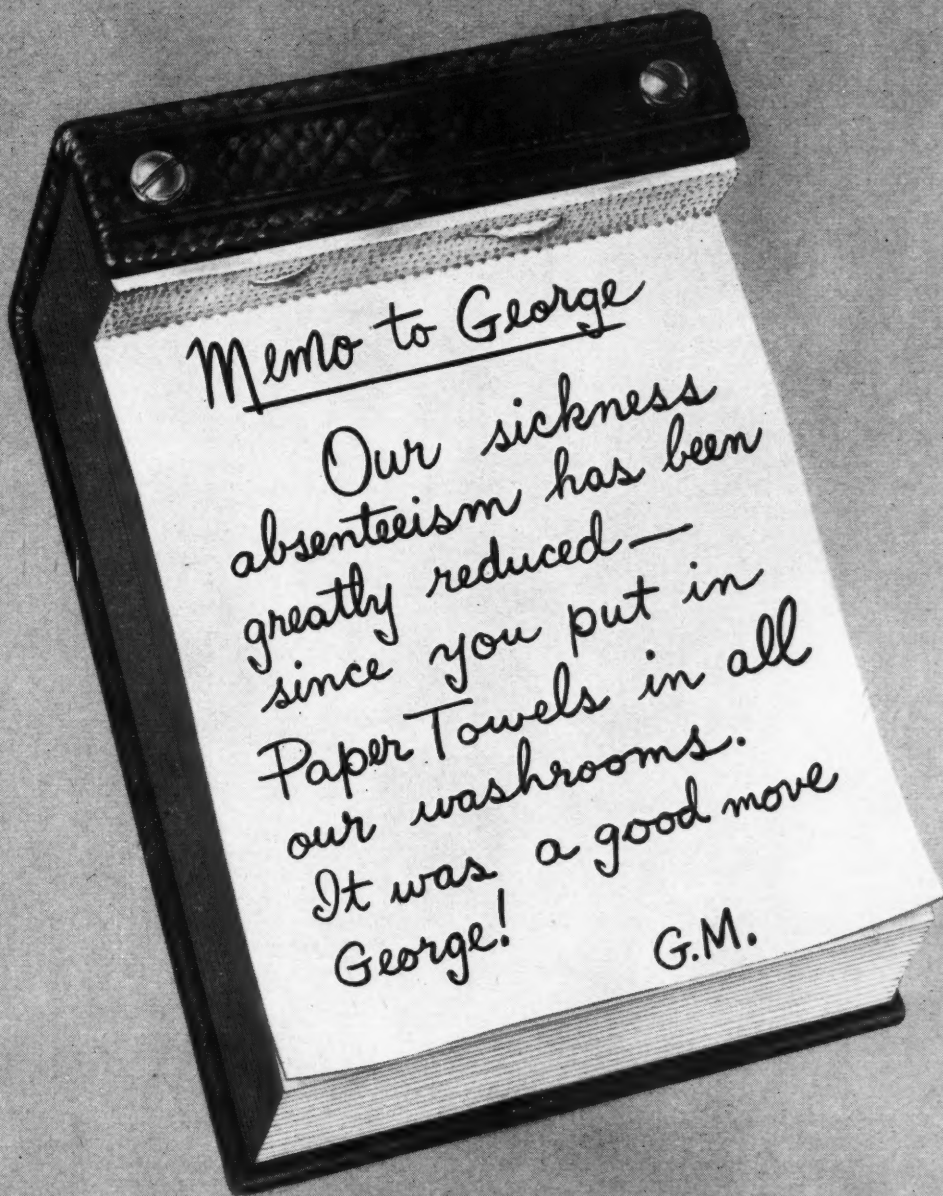 Memo to George
Our sickness
absenteeism has been
greatly reduced—
since you put in
Paper Towels in all
our washrooms.
It was a good move
George! G.M.